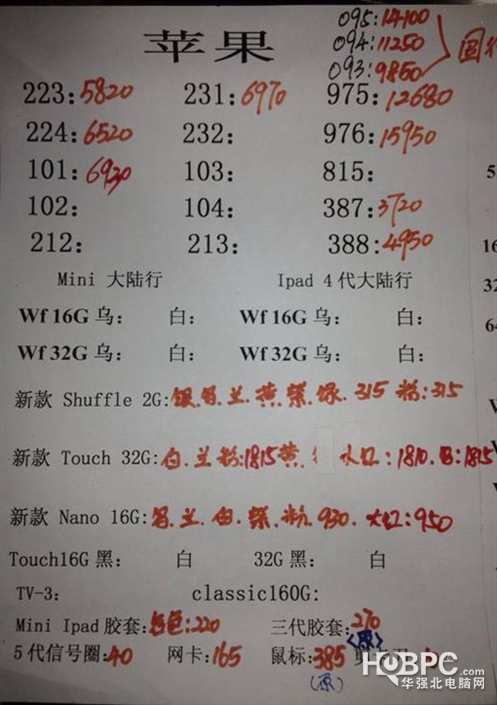 苹果
095:14100
094:11250
093:9860
国行
223:5820 231:6970 975:12680
224:6520 232: 976:15950
101:6930 103: 815:
102: 104: 387:3720
212: 213: 388:4950
Mini 大陆行 Ipad 4代大陆行
Wf 16G 乌: 白: Wf 16G 乌: 白:
Wf 32G 乌: 白: Wf 32G 乌: 白:
新款 Shuffle 2G:银.兰.黄.紫.绿.315 粉:315
新款 Touch 32G:白.兰.粉:1815 黄 大红:1810. :1815
新款 Nano 16G: .兰.白.紫.粉.930.大红:950
Touch16G 黑: 白 32G 黑: 白
TV-3: classic160G:
Mini Ipad 胶套: 色:220 三代胶套:270
(原)
5代信号圈:40 网卡:165 鼠标:385
(原)
HQBPC.com
华强北电脑网